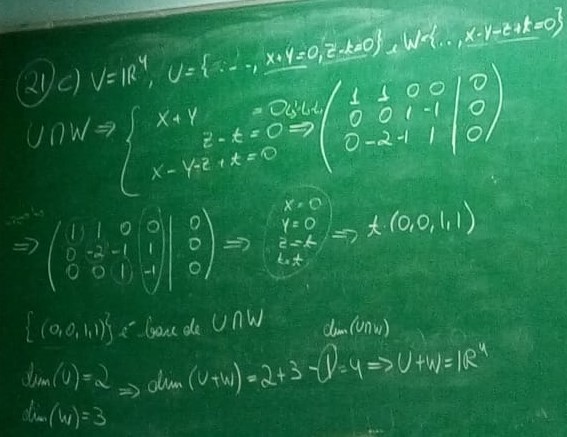 21 c) V=IR⁴, U={...., x+y=0, z-t=0} e W={..., x-y-z+t=0}
U∩W ⇒ { x+y = 0
z-t=0 ⇒ ( 1 1 0 0 | 0
0 0 1 -1 | 0
x-y-z+t=0 0 -2 -1 1 | 0 )
⇒ ( 1 1 0 0 | 0
0 -2 -1 1 | 0
0 0 1 -1 | 0 ) ⇒ x=0
y=0
z=t
t=t ⇒ t.(0,0,1,1)
{(0,0,1,1)} é base de U∩W dim(U∩W)
dim(U)=2 ⇒ dim(U+W)=2+3-1=4 ⇒ U+W=IR⁴
dim(W)=3